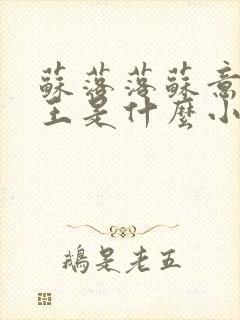 蘇落落蘇意
王是什麼小
鵝是老五